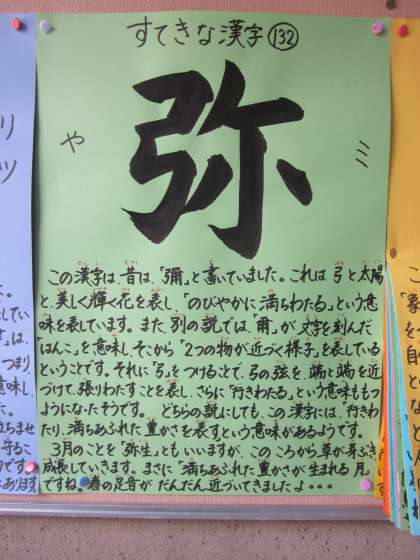 すてきな漢字 132
弥
や
ミ
この漢字は、昔は、「彌」と書いていました。これは 弓と太陽
と、美しく輝く花を表し、「のびやかに満ちわたる」という意
味を表しています。また、別の説では、「爾」が 文字を刻んだ
「はんこ」を意味し、そこから「2つの物が近づく様子」を表している
ということです。それに「弓」をつけることで、弓の弦を、端と端を近
づけて、張りわたすことを表し、さらに「行きわたる」という意味ももつ
ようになったそうです。 どちらの説にしても、この漢字には、「行きわ
たり、満ちあふれた豊かさを表す」という意味があるようです。
3月のことを「弥生」ともいいますが、このころから草が芽ぶき、
成長していきます。まさに「満ちあふれた豊かさが生まれる月」
ですね。春の足音が だんだん近づいてきましたよ・・・